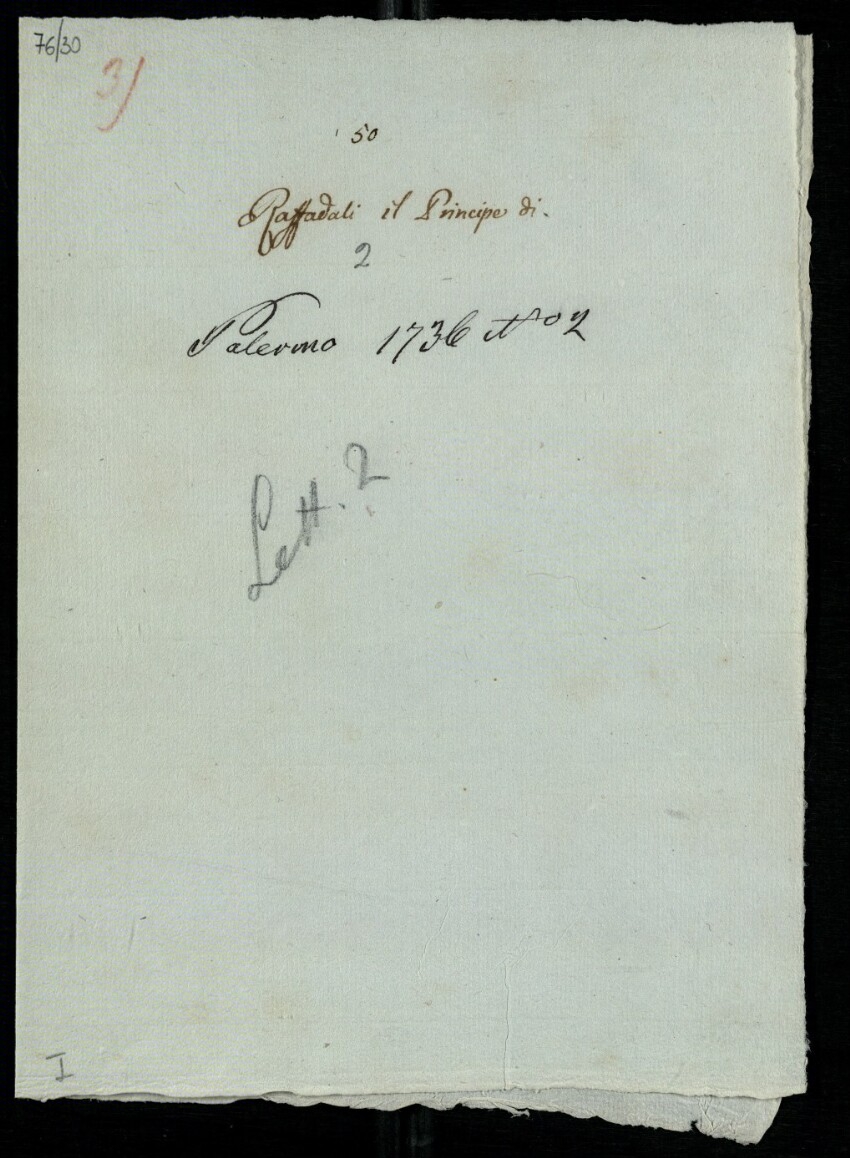 76/30
3)
50
Raffadali il Principe di.
2
Palermo 1736 No 2
Lett. 2
I